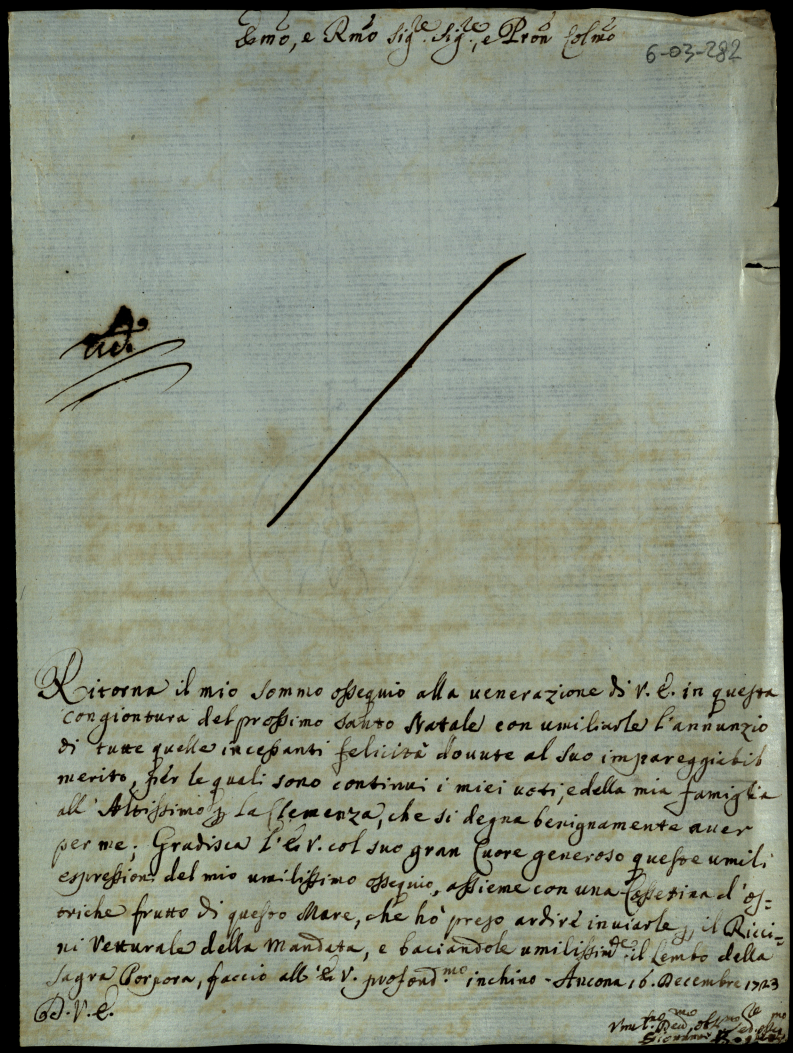 Emo, e Rmo Sigre Sigre, e Pron Colmo
6-03-282
Ritorna il mio sommo ossequio alla uenerazione di V. E. in questa
congiontura del prossimo santo Natale con umiliarle l'annunzio
di tutte quelle incessanti felicità douute al suo impareggiabil
merito, per le quali sono continui i miei uoti, e della mia famiglia
all'Altissimo, e la Clemenza, che si degna benignamente auer
per me; Gradisca l'E. V. col suo gran Cuore generoso queste umili
espressioni del mio umilissimo ossequio, assieme con una Cassettina d'os-
triche frutto di questo Mare, che hò preso ardire inuiarle p il Ricci-
ni Vetturale della Mandata, e baciandole umilissimte il Lembo della
sagra Porpora, faccio all'E. V. profondmo inchino - Ancona 16. Decembre 1723
D. V. E.
Giovanni